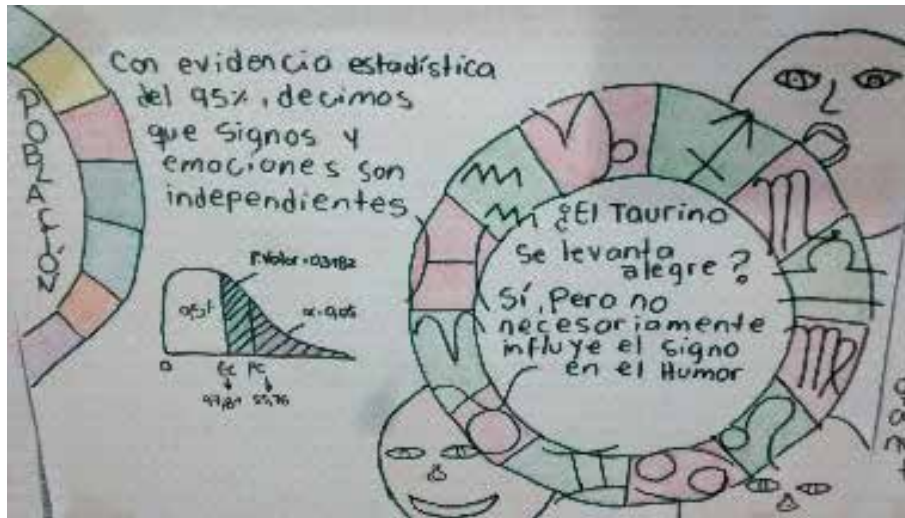 POBLACIÓN
Con evidencia estadística
del 95%, decimos
que signos y
emociones son
independientes
P.Valor=0,3182
α=0,05
0
Ec Pc
¿El Taurino
se levanta
alegre?
Sí, Pero no
necesariamente
influye el signo
en el Humor